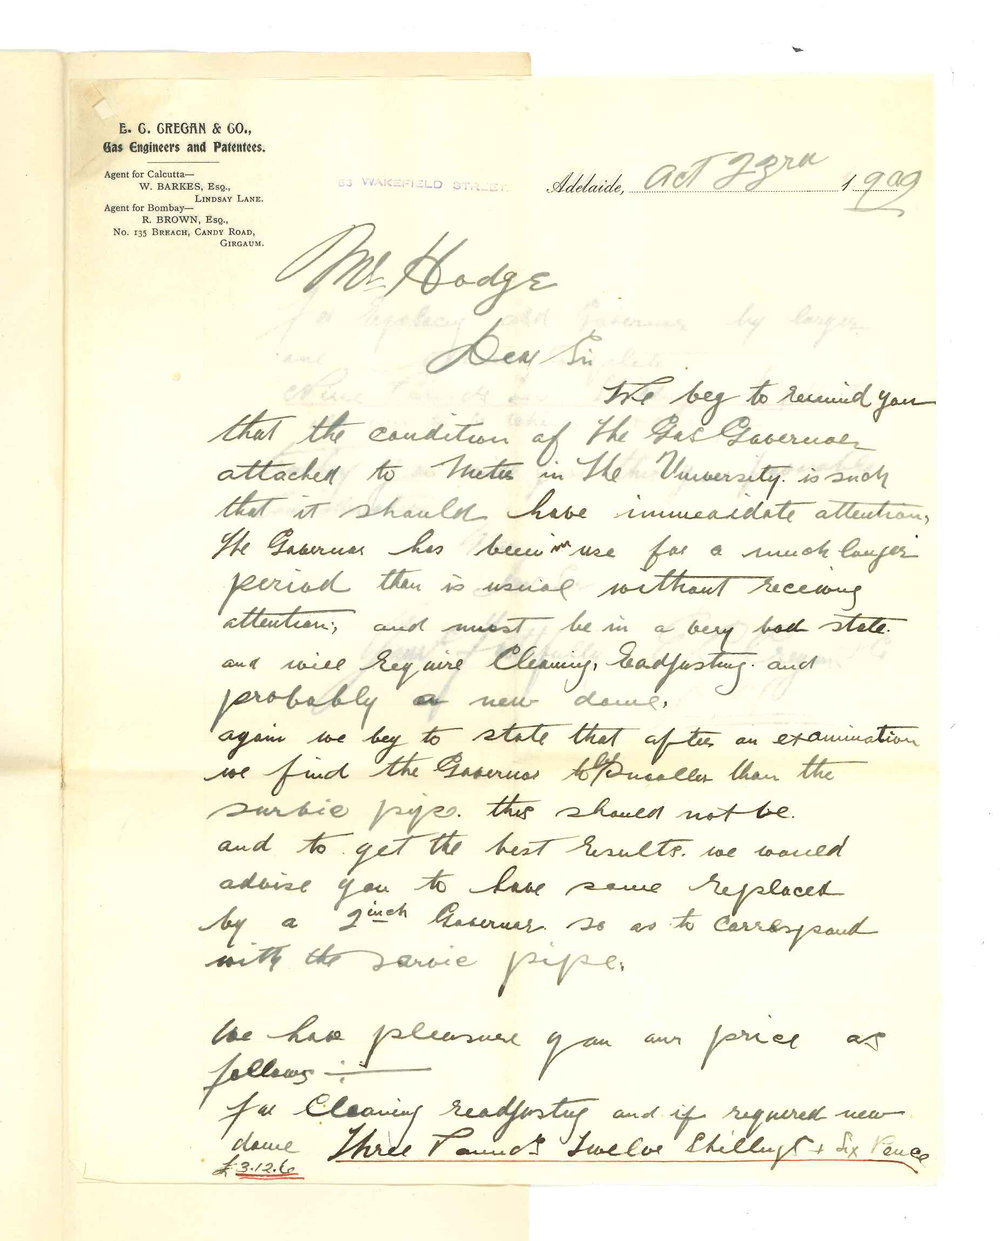 E. C. CREGAN & CO.,
Gas Engineers and Patentees.
Agent for Calcutta—
W. BARKES, Esq.,
LINDSAY LANE.
Agent for Bombay—
R. BROWN, Esq.,
No. 135 BREACH, CANDY ROAD,
GIRGAUM.
63 WAKEFIELD STREET
Adelaide, Oct 23rd 1909
Mr Hodge
Dear Sir
We beg to remind you
that the condition of the Gas Governor
attached to Meter in the University. is such
that it should have immeaidate attention,
the Governor has been in use for a much longer
period than is usual without receiving
attention; and must be in a very bad state.
and will require Cleaning, Readjusting. and
probably a new dome.
again we beg to state that after an examination
we find the Governor to be smaller than the
survie pipe. this should not be.
and to get the best results. we would
advise you to have same replaced
by a 2 inch Governor so as to correspond
with the servie pipe.
We have pleasure you our price as
follows :—
for Cleaning readjusting and if required new
dome Three Pounds Twelve Shillings + Six Pence
£3.12.6